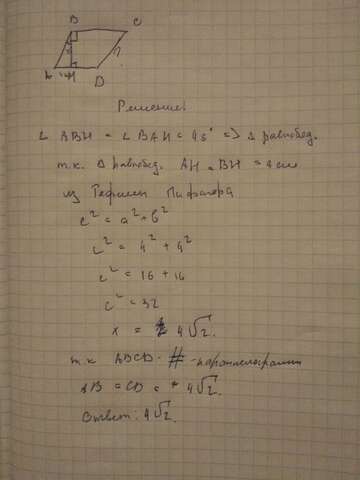 B C
A 4 H D ?
Решение:
∠ ABH = ∠ BAH = 45° => Δ равнобед.
т.к. Δ равнобед. AH = BH = 4 см
из Теоремы Пифагора
c² = a² + b²
c² = 4² + 4²
c² = 16 + 16
c² = 32
x = 4√2.
т.к ABCD - параллелограмм
AB = CD = 4√2.
Ответ: 4√2.